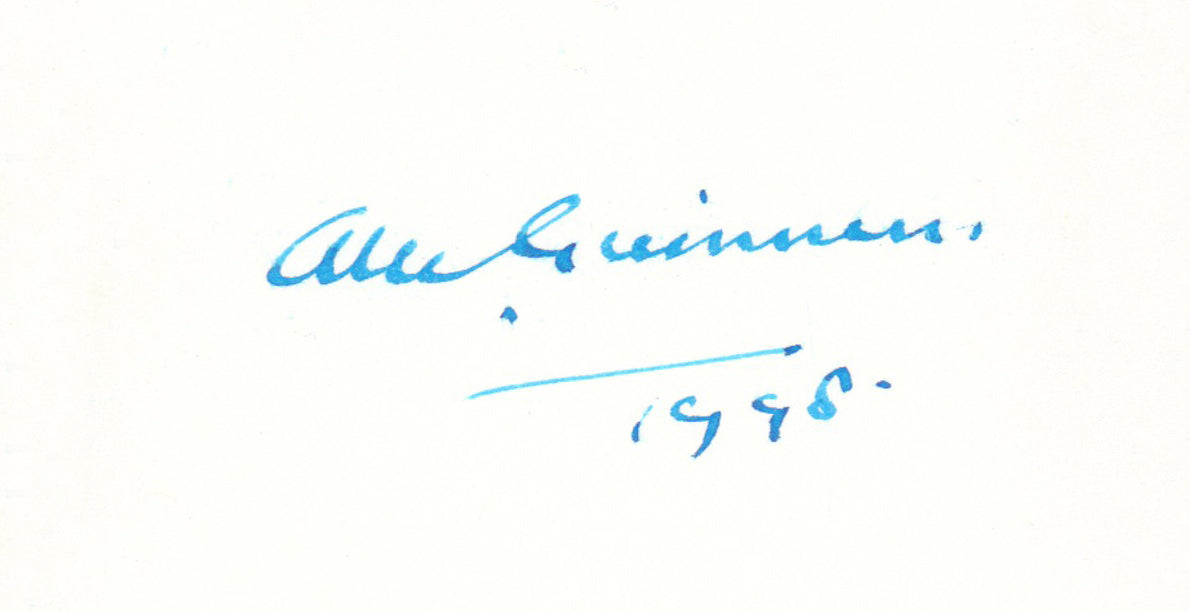 Alec Guinness.
1998.